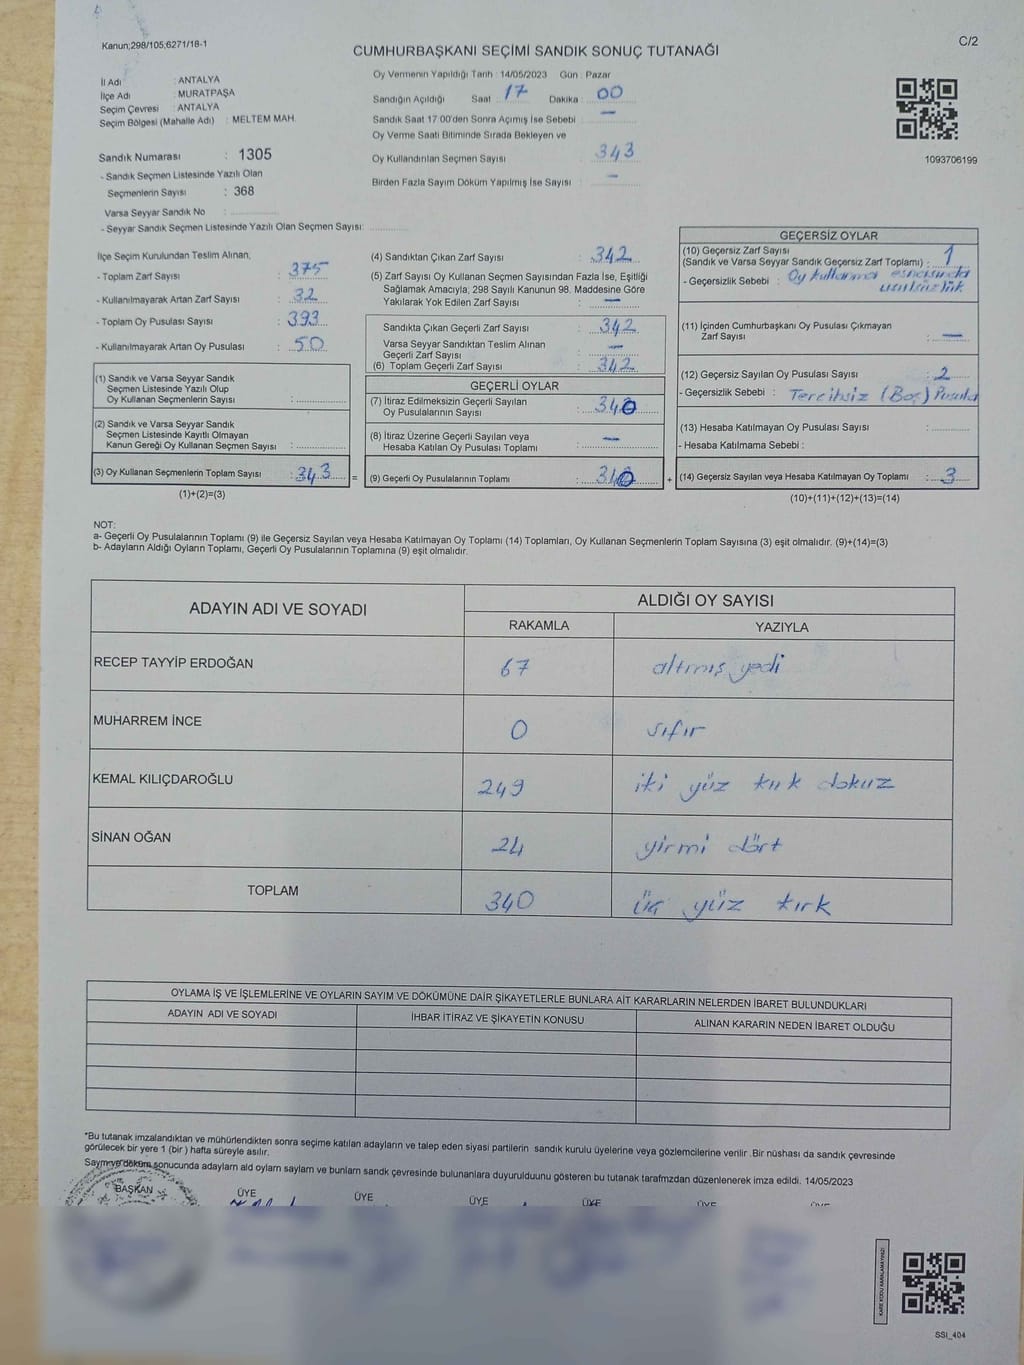 Kanun;298/105;6271/18-1
C/2
CUMHURBAŞKANI SEÇİMİ SANDIK SONUÇ TUTANAĞI
İl Adı : ANTALYA
İlçe Adı : MURATPAŞA
Seçim Çevresi : ANTALYA
Seçim Bölgesi (Mahalle Adı) : MELTEM MAH.
Sandık Numarası : 1305
- Sandık Seçmen Listesinde Yazılı Olan
Seçmenlerin Sayısı : 368
Varsa Seyyar Sandık No :
- Seyyar Sandık Seçmen Listesinde Yazılı Olan Seçmen Sayısı:
Oy Vermenin Yapıldığı Tarih : 14/05/2023 Gün : Pazar
Sandığın Açıldığı Saat : 17 Dakika : 00
Sandık Saat 17:00'den Sonra Açılmış İse Sebebi : —
Oy Verme Saati Bitiminde Sırada Bekleyen ve
Oy Kullandırılan Seçmen Sayısı : 343
Birden Fazla Sayım Döküm Yapılmış İse Sayısı : —
1093706199
İlçe Seçim Kurulundan Teslim Alınan,
- Toplam Zarf Sayısı : 375
- Kullanılmayarak Artan Zarf Sayısı : 32
- Toplam Oy Pusulası Sayısı : 393
- Kullanılmayarak Artan Oy Pusulası : 50
(1) Sandık ve Varsa Seyyar Sandık
Seçmen Listesinde Yazılı Olup
Oy Kullanan Seçmenlerin Sayısı :
(2) Sandık ve Varsa Seyyar Sandık
Seçmen Listesinde Kayıtlı Olmayan
Kanun Gereği Oy Kullanan Seçmen Sayısı :
(3) Oy Kullanan Seçmenlerin Toplam Sayısı : 343 =
(1)+(2)=(3)
(4) Sandıktan Çıkan Zarf Sayısı : 342
(5) Zarf Sayısı Oy Kullanan Seçmen Sayısından Fazla İse, Eşitliği
Sağlamak Amacıyla; 298 Sayılı Kanunun 98. Maddesine Göre
Yakılarak Yok Edilen Zarf Sayısı : —
Sandıkta Çıkan Geçerli Zarf Sayısı : 342
Varsa Seyyar Sandıktan Teslim Alınan : —
Geçerli Zarf Sayısı
(6) Toplam Geçerli Zarf Sayısı : 342
GEÇERLİ OYLAR
(7) İtiraz Edilmeksizin Geçerli Sayılan
Oy Pusulalarının Sayısı : 340
(8) İtiraz Üzerine Geçerli Sayılan veya
Hesaba Katılan Oy Pusulası Toplamı : —
(9) Geçerli Oy Pusulalarının Toplamı : 340 +
GEÇERSİZ OYLAR
(10) Geçersiz Zarf Sayısı
(Sandık ve Varsa Seyyar Sandık Geçersiz Zarf Toplamı) : 1
- Geçersizlik Sebebi : Oy kullanma esnasında
usulsüzlük
(11) İçinden Cumhurbaşkanı Oy Pusulası Çıkmayan
Zarf Sayısı : —
(12) Geçersiz Sayılan Oy Pusulası Sayısı : 2
- Geçersizlik Sebebi : Tercihsiz (Boş) Pusula
(13) Hesaba Katılmayan Oy Pusulası Sayısı :
- Hesaba Katılmama Sebebi :
(14) Geçersiz Sayılan veya Hesaba Katılmayan Oy Toplamı : 3
(10)+(11)+(12)+(13)=(14)
NOT:
a- Geçerli Oy Pusulalarının Toplamı (9) ile Geçersiz Sayılan veya Hesaba Katılmayan Oy Toplamı (14) Toplamları, Oy Kullanan Seçmenlerin Toplam Sayısına (3) eşit olmalıdır. (9)+(14)=(3)
b- Adayların Aldığı Oyların Toplamı, Geçerli Oy Pusulalarının Toplamına (9) eşit olmalıdır.
ADAYIN ADI VE SOYADI
ALDIĞI OY SAYISI
RAKAMLA YAZIYLA
RECEP TAYYİP ERDOĞAN 67 altmış yedi
MUHARREM İNCE 0 sıfır
KEMAL KILIÇDAROĞLU 249 iki yüz kırk dokuz
SİNAN OĞAN 24 yirmi dört
TOPLAM 340 üç yüz kırk
OYLAMA İŞ VE İŞLEMLERİNE VE OYLARIN SAYIM VE DÖKÜMÜNE DAİR ŞİKAYETLERLE BUNLARA AİT KARARLARIN NELERDEN İBARET BULUNDUKLARI
ADAYIN ADI VE SOYADI İHBAR İTİRAZ VE ŞİKAYETİN KONUSU ALINAN KARARIN NEDEN İBARET OLDUĞU
*Bu tutanak imzalandıktan ve mühürlendikten sonra seçime katılan adayların ve talep eden siyasi partilerin sandık kurulu üyelerine veya gözlemcilerine verilir .Bir nüshası da sandık çevresinde
görülecek bir yere 1 (bir ) hafta süreyle asılır.
Sayım ve döküm sonucunda adayların ald oyların saylam ve bunlarn sandk çevresinde bulunanlara duyurulduunu gösteren bu tutanak tarafmzdan düzenlenerek imza edildi. 14/05/2023
BAŞKAN ÜYE ÜYE ÜYE ÜYE ÜYE
SSI_404